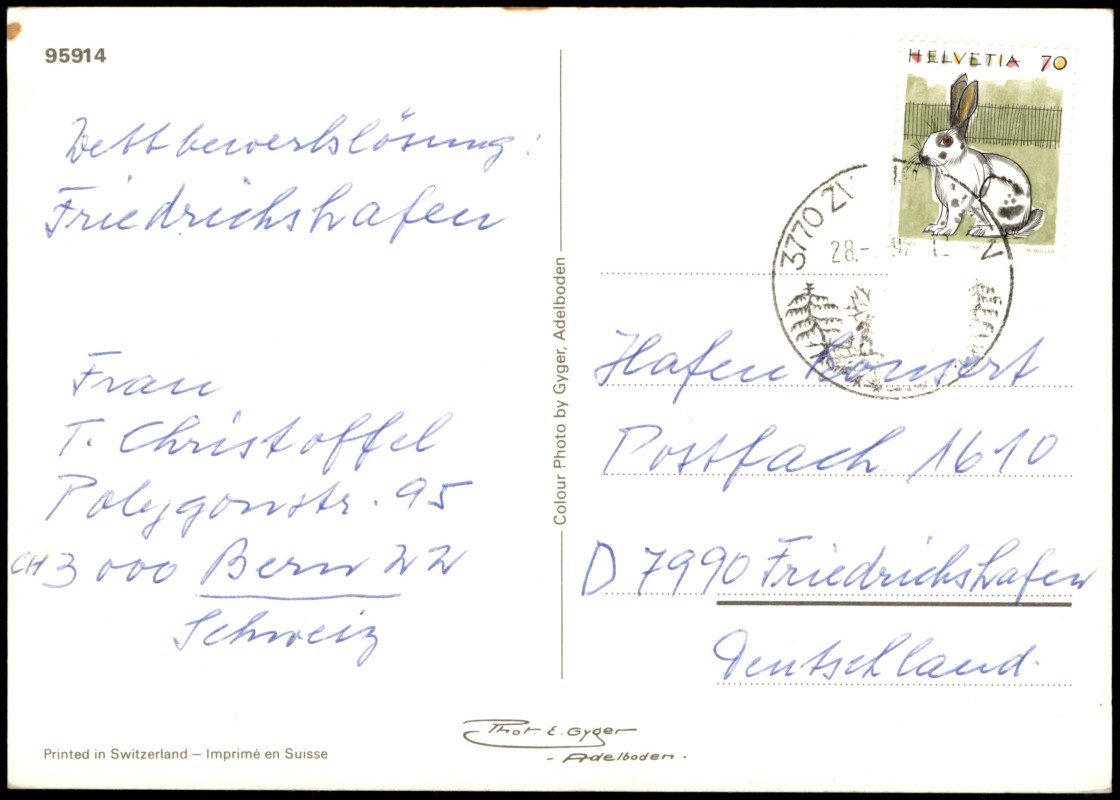 95914
HELVETIA 70
Wettbewerbslösung:
Friedrichshafen
3770 ZI
28.-
Frau
T. Christoffel
Polygonstr. 95
CH 3000 Bern 22
Schweiz
Colour Photo by Gyger, Adelboden
Hafen Konzert
Postfach 1610
D 7990 Friedrichshafen
Deutschland.
Phot. E. Gyger
- Adelboden.
Printed in Switzerland – Imprimé en Suisse